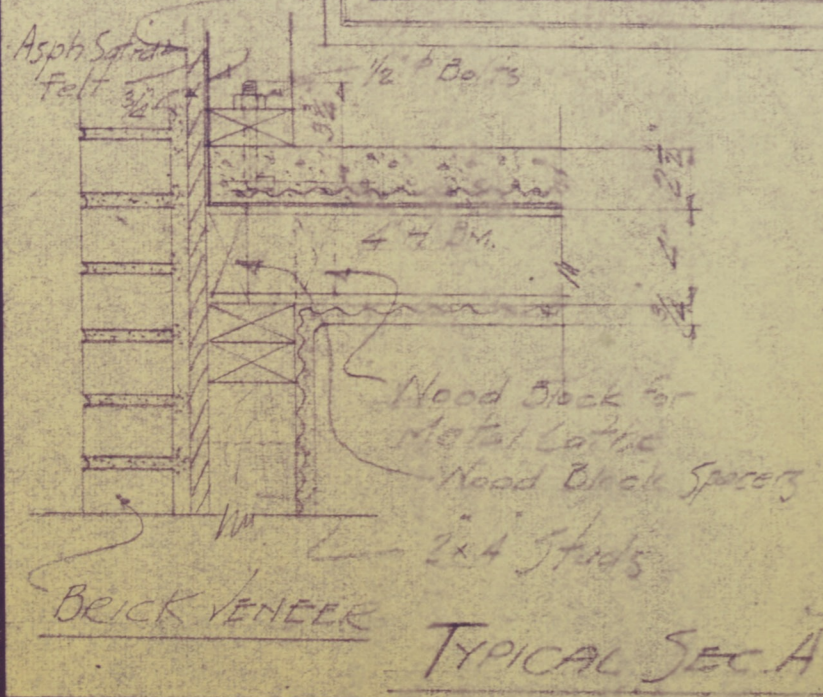 Asph Satrd
Felt
3/4"
1/2" φ Bolts
3 3/4
2 1/2"
4" H Bm.
4"
3/4
Wood Block for
Metal Lathe
Wood Block Spacers
2"x4" Studs
BRICK VENEER
TYPICAL SEC. A